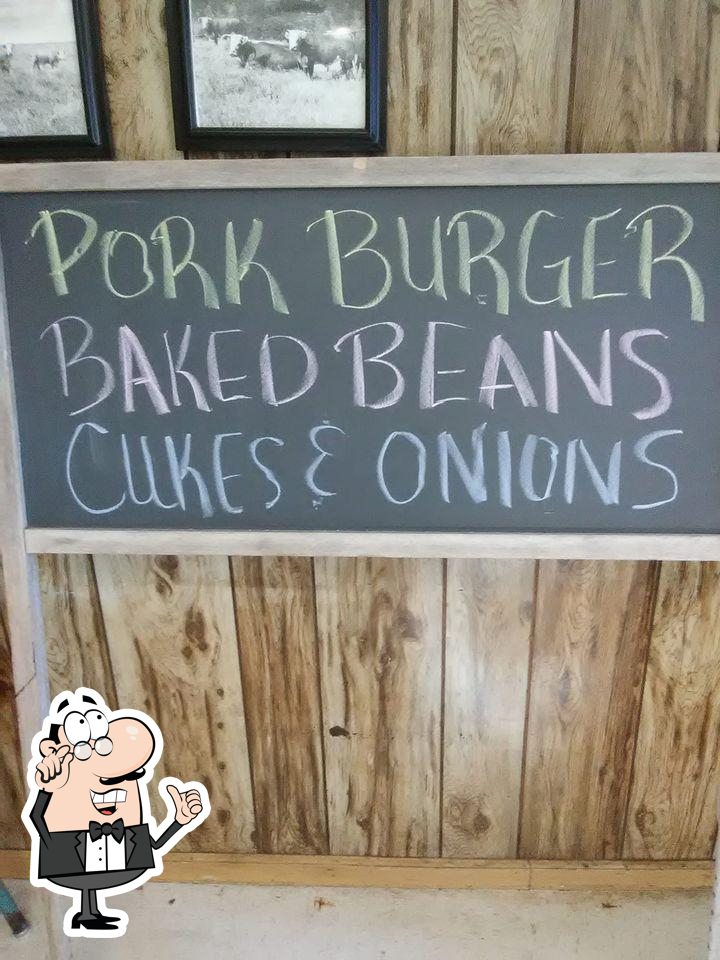 PORK BURGER
BAKED BEANS
CUKES & ONIONS